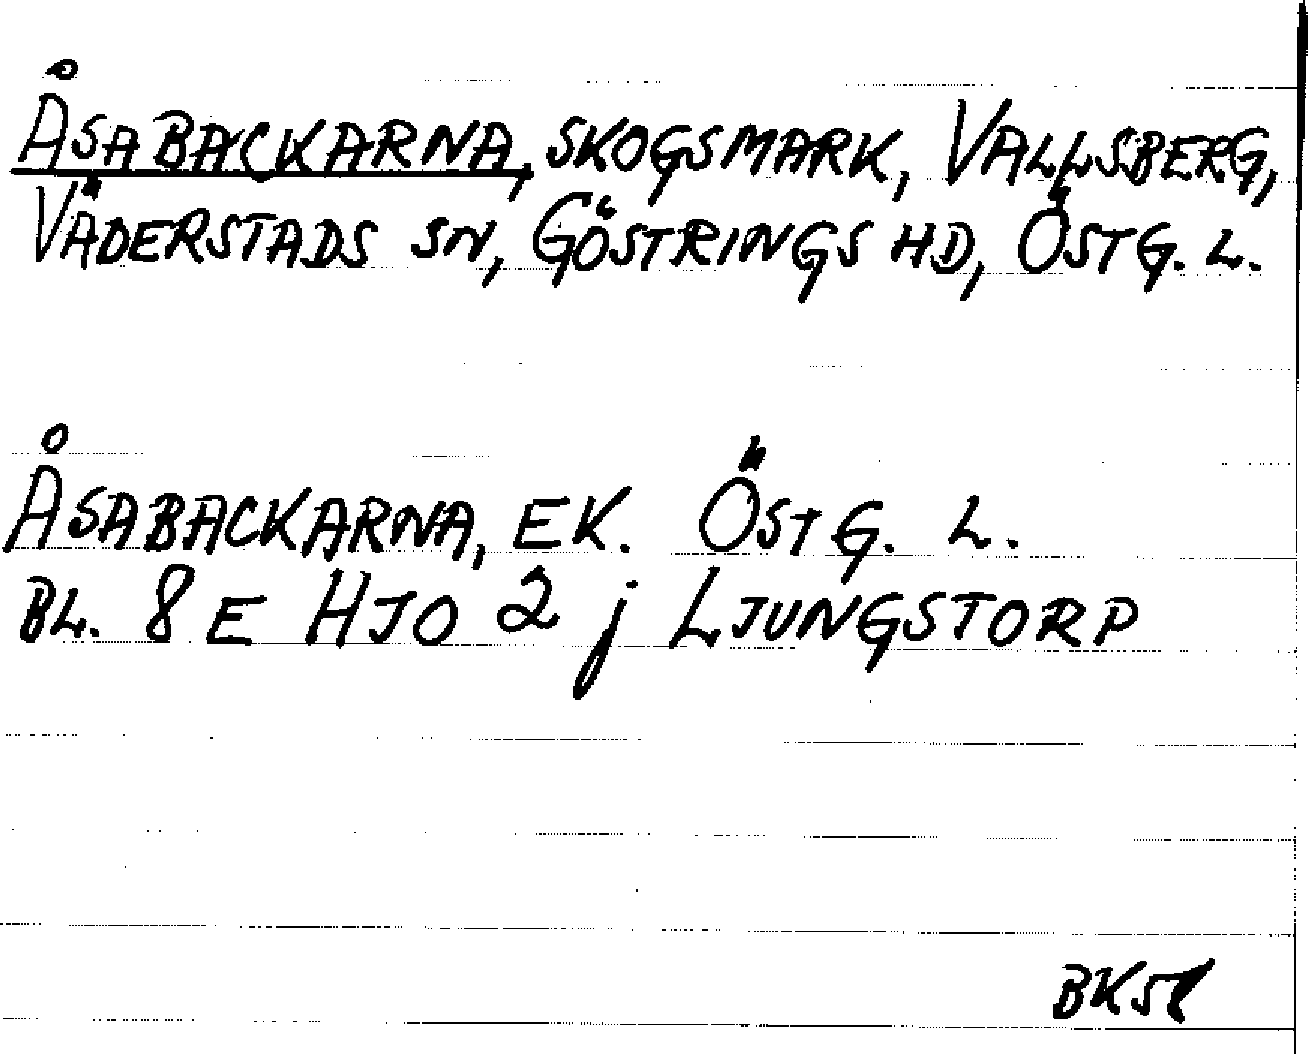 ÅSABACKARNA, SKOGSMARK, VALLSBERG,
VÄDERSTADS SN, GÖSTRINGS HD, ÖSTG. L.
ÅSABACKARNA, EK. ÖSTG. L.
BL. 8 E HJO 2 j LJUNGSTORP